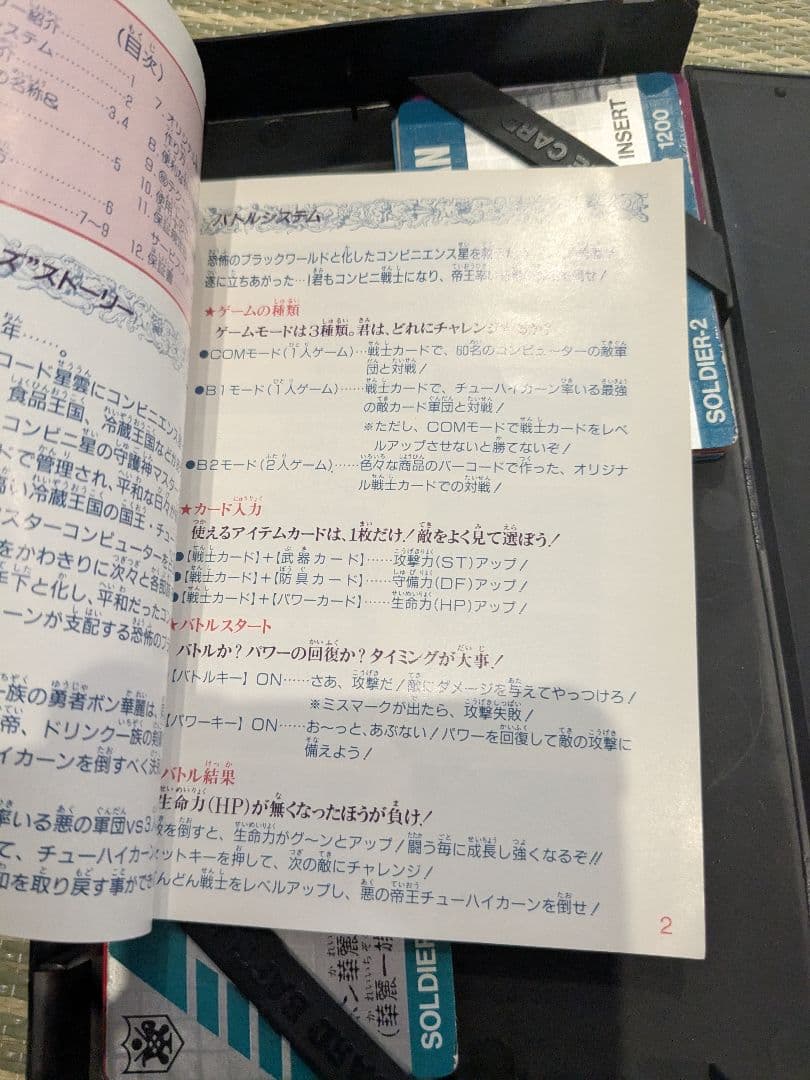 (目次)
リー紹介
システム……1
介……2
の名称&……3,4
……5
……6
……7~9
7.オリジナル
8.
9.
10.
11.
12.保証書
ズ"ストーリー
年……。
コード星雲にコンビニエンス
食品王国、冷蔵王国など
コンビニ星の守護神マスター
ドで管理され、平和な日々が
高い冷蔵王国の国王・チュー
マスターコンピューターを
をかわきりに次々と各
下と化し、平和だったコン
カーンが支配する恐怖のブラ
一族の勇者ボン華麗は、
帝、ドリンク一族の
ハイカーンを倒すべく決
率いる悪の軍団vs3
て、チューハイカーン
和を取り戻す事ができ
バトルシステム
恐怖のブラックワールドと化したコンビニエンス星を
遂に立ちあがった…!君もコンビニ戦士になり、帝王率い
倒せ!
★ゲームの種類
ゲームモードは3種類。君は、どれにチャレンジ
●COMモード(1人ゲーム)…戦士カードで、60名のコンピューターの敵軍
団と対戦!
●B1モード(1人ゲーム)……戦士カードで、チューハイカーン率いる最強
の敵カード軍団と対戦!
※ただし、COMモードで戦士カードをレベ
ルアップさせないと勝てないぞ!
●B2モード(2人ゲーム)……色々な商品のバーコードで作った、オリジナ
ル戦士カードでの対戦!
★カード入力
使えるアイテムカードは、1枚だけ!敵をよく見て選ぼう!
●【戦士カード】+【武器カード】……攻撃力(ST)アップ!
●【戦士カード】+【防具カード】……守備力(DF)アップ!
●【戦士カード】+【パワーカード】……生命力(HP)アップ!
★バトルスタート
バトルか?パワーの回復か?タイミングが大事!
【バトルキー】ON……さあ、攻撃だ!敵にダメージを与えてやっつけろ!
※ミスマークが出たら、攻撃失敗!
【パワーキー】ON……お〜っと、あぶない!パワーを回復して敵の攻撃に
備えよう!
バトル結果
生命力(HP)が無くなったほうが負け!
敵を倒すと、生命力がグ〜ンとアップ!闘う毎に成長し強くなるぞ!!
ットキーを押して、次の敵にチャレンジ!
んどん戦士をレベルアップし、悪の帝王チューハイカーンを倒せ!
2
CARD
INSERT
1200
SOLDIER-2
ン華麗
(華麗一族
SOLDIER
CARD BA